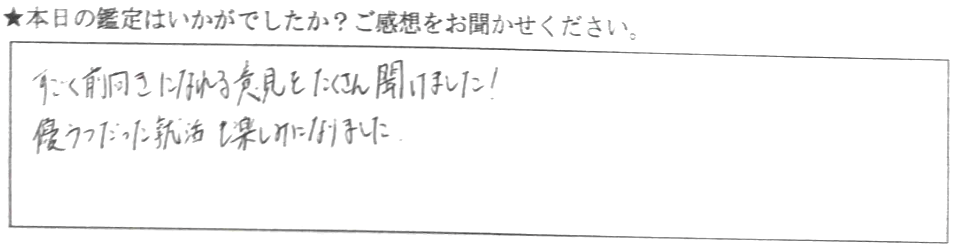 ★本日の鑑定はいかがでしたか？ご感想をお聞かせください。
すごく前向きになれる意見をたくさん聞けました！
優うつだった就活も楽しみになりました